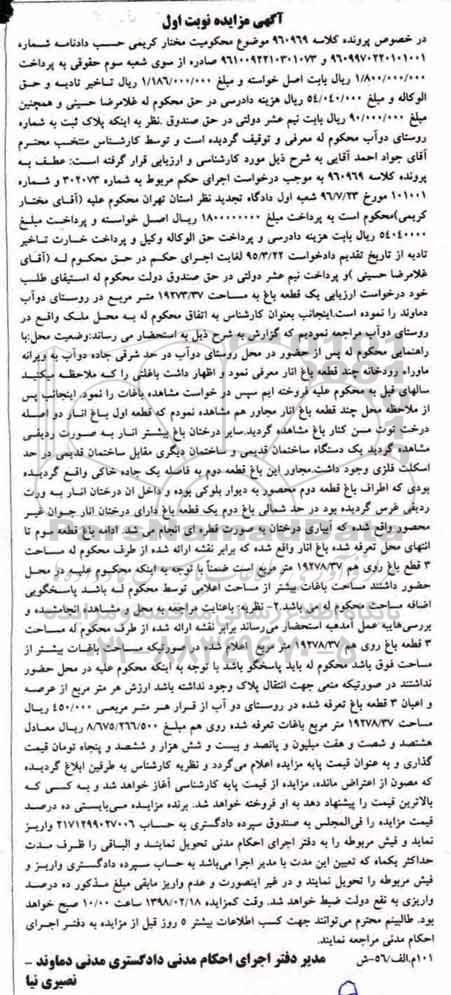 آگهی مزایده نوبت اول
در خصوص پرونده کلاسه ۹۶۰۹۶۹ موضوع محکومیت مختار کریمی حسب دادنامه شماره
۹۶۰۹۹۷۰۲۲۰۱۰۱۰۰۱ و ۹۶۱۰۰۹۲۲۱۰۳۰۱۰۷۳ صادره از سوی شعبه سوم حقوقی به پرداخت
۱/۸۰۰/۰۰۰/۰۰۰ ریال بابت اصل خواسته و مبلغ ۱/۱۸۶/۰۰۰/۰۰۰ ریال تاخیر تادیه و حق
الوکاله و مبلغ ۵۴/۰۴۰/۰۰۰ ریال هزینه دادرسی در حق محکوم له غلامرضا حسینی و همچنین
مبلغ ۹۰/۰۰۰/۰۰۰ ریال بابت نیم عشر دولتی در حق صندوق .نظر به اینکه پلاک ثبت به شماره
روستای دوآب محکوم له معرفی و توقیف گردیده است و توسط کارشناس منتخب محترم
آقای جواد احمد آقایی به شرح ذیل مورد کارشناسی و ارزیابی قرار گرفته است: عطف به
پرونده کلاسه ۹۶۰۹۶۹ به موجب درخواست اجرای حکم مربوط به شماره ۳۰۲۰۷۳ و شماره
۱۰۱۰۰۱ مورخ ۹۶/۷/۲۳ شعبه اول دادگاه تجدید نظر استان تهران محکوم علیه (آقای مختار
کریمی)محکوم است به پرداخت مبلغ ۱۸۰۰۰۰۰۰۰۰ ریال اصل خواسته و پرداخت مبلغ
۵۴۰۴۰۰۰۰ ریال بابت هزینه دادرسی و پرداخت حق الوکاله وکیل و پرداخت خسارت تاخیر
تادیه از تاریخ تقدیم دادخواست ۹۵/۳/۲۲ لغایت اجرای حکم در حق محکوم له (آقای
غلامرضا حسینی )و پرداخت نیم عشر در حق صندوق دولت محکوم له استیفای طلب
خود درخواست ارزیابی یک قطعه باغ به مساحت ۱۹۲۷۳/۳۷ متر مربع در روستای دوآب
دماوند را نموده است.اینجانب بعنوان کارشناس به اتفاق محکوم له به محل ملک واقع در
روستای دوآب مراجعه نمودیم که گزارش به شرح ذیل به استحضار می رساند:وضعیت محل:با
راهنمایی محکوم له پس از حضور در محل روستای دوآب در حد شرقی جاده دوآب به ویرانه
ماوراء رودخانه چند قطعه باغ انار معرفی نمود و اظهار داشت باغاتی را که ملاحظه میکنید
سالهای قبل به محکوم علیه فروخته ایم سپس در خواست مشاهده باغات را نمود. اینجانب پس
از ملاحظه محل چند قطعه باغ انار مجاور هم مشاهده نمودم که قطعه اول باغ انار دو اصله
درخت توت مسن کنار باغ مشاهده گردید.سایر درختان باغ بیشتر انار به صورت ردیفی
مشاهده گردید یک دستگاه ساختمان قدیمی و ساختمان دیگری مقابل ساختمان قدیمی در حد
اسکلت فلزی وجود داشت.مجاور این باغ قطعه دوم به فاصله یک جاده خاکی واقع گردیده
بودی که اطراف باغ قطعه دوم محصور به دیوار بلوکی بوده و داخل ان درختان انار به ورت
ردیفی غرس گردیده بود در حد شمالی باغ دوم یک قطعه باغ دارای درختان انار جوان غیر
محصور واقع شده که آبیاری درختان به صورت قطره ای انجام می شد. ادامه باغ قطعه سوم تا
انتهای محل تعرفه شده باغ انار واقع شده که برابر نقشه ارائه شده از طرف محکوم له مساحت
۳ قطع باغ روی هم ۱۹۲۷۸/۳۷ متر مربع است ضمناً با توجه به اینکه محکوم علیه در محل
حضور داشتند مساحت باغات بیشتر از مساحت اعلامی توسط محکوم له باشد پاسخگویی
اضافه مساحت محکوم له می باشد.۲- نظریه: باعنایت مراجعه به محل و مشاهده انجامشده و
بررسی‌هایبه عمل آمدهبه استحضار می‌رساند برابر نقشه ارائه شده از طرف محکوم له مساحت
۳ قطعه باغ روی هم ۱۹۲۷۸/۳۷ متر مربع اعلام شده در صورتیکه مساحت باغات بیشتر از
مساحت فوق باشد محکوم له باید پاسخگو باشد با توجه به اینکه محکوم علیه در محل حضور
نداشتند در صورتیکه منعی جهت انتقال پلاک وجود نداشته باشد ارزش هر متر مربع از عرصه
و اعیان ۳ قطعه باغ تعرفه شده در روستای دو آب از قرار هر متر مربعی ۴۵۰/۰۰۰ ریال
مساحت ۱۹۲۷۸/۳۷ متر مربع باغات تعرفه شده روی هم مبلغ ۸/۶۷۵/۲۶۶/۵۰۰ ریال معادل
هشتصد و شصت و هفت میلیون و پانصد و بیست و شش هزار و ششصد و پنجاه تومان قیمت
گذاری و به عنوان قیمت پایه مزایده اعلام می‌گردد و نظریه کارشناس به طرفین ابلاغ گردیده
که مصون از اعتراض مانده، مزایده از قیمت پایه کارشناسی آغاز خواهد شد و به کسی که
بالاترین قیمت را پیشنهاد دهد به او فروخته خواهد شد. برنده مزایده می‌بایستی ده درصد
قیمت مزایده را فی‌المجلس به صندوق سپرده دادگستری به حساب ۲۱۷۱۲۹۹۰۲۷۰۰۶ واریز
نماید و فیش مربوطه را به دفتر اجرای احکام مدنی تحویل نمایند و الباقی را ظرف مدت
حداکثر یکماه که تعیین این مدت با مدیر اجرا می‌باشد به حساب سپرده دادگستری واریز و
فیش مربوطه را تحویل نمایند و در غیر اینصورت و عدم واریز مابقی مبلغ مذکور ده درصد
واریزی به نفع دولت ضبط خواهد شد. وقت کمزایده ۱۳۹۸/۰۲/۱۸ ساعت ۱۰/۰۰ صبح خواهد
بود. طالبینم محترم می‌توانند جهت کسب اطلاعات بیشتر ۵ روز قبل از مزایده به دفتر اجرای
احکام مدنی مراجعه نمایند.
۱۰۱م.الف/۵۶-ش مدیر دفتر اجرای احکام مدنی دادگستری مدنی دماوند -
نصیری نیا